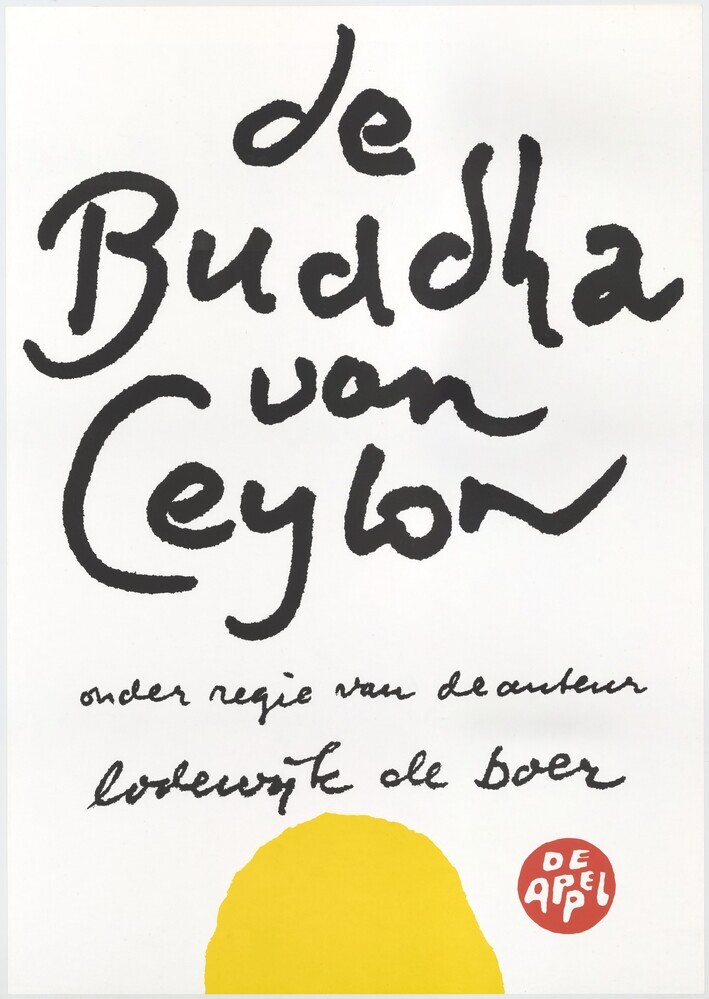 de
Buddha
van
Ceylon
onder regie van de auteur
lodewijk de boer
DE
APPEL